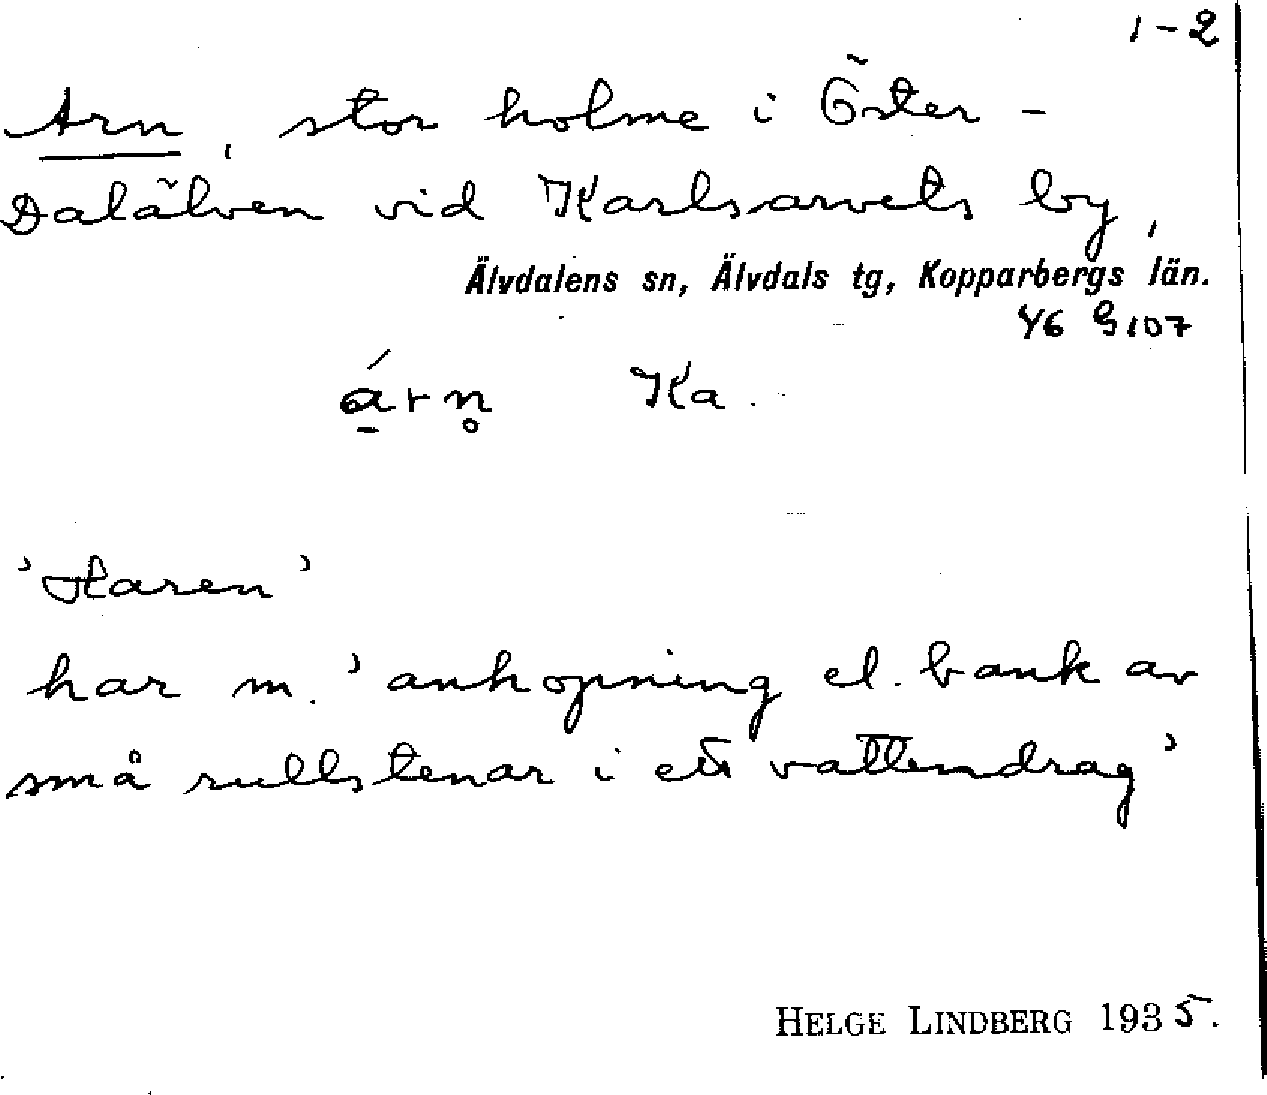 1-2
Arn, stor holme i Öster-
Dalälven vid Karlsarvets by,
Älvdalens sn, Älvdals tg, Kopparbergs län.
Y6 G107
á̱rn̥ Ka.
'Haren'
har m. 'anhopning el. bank av
små rullstenar i ett vattendrag'
HELGE LINDBERG 1935.